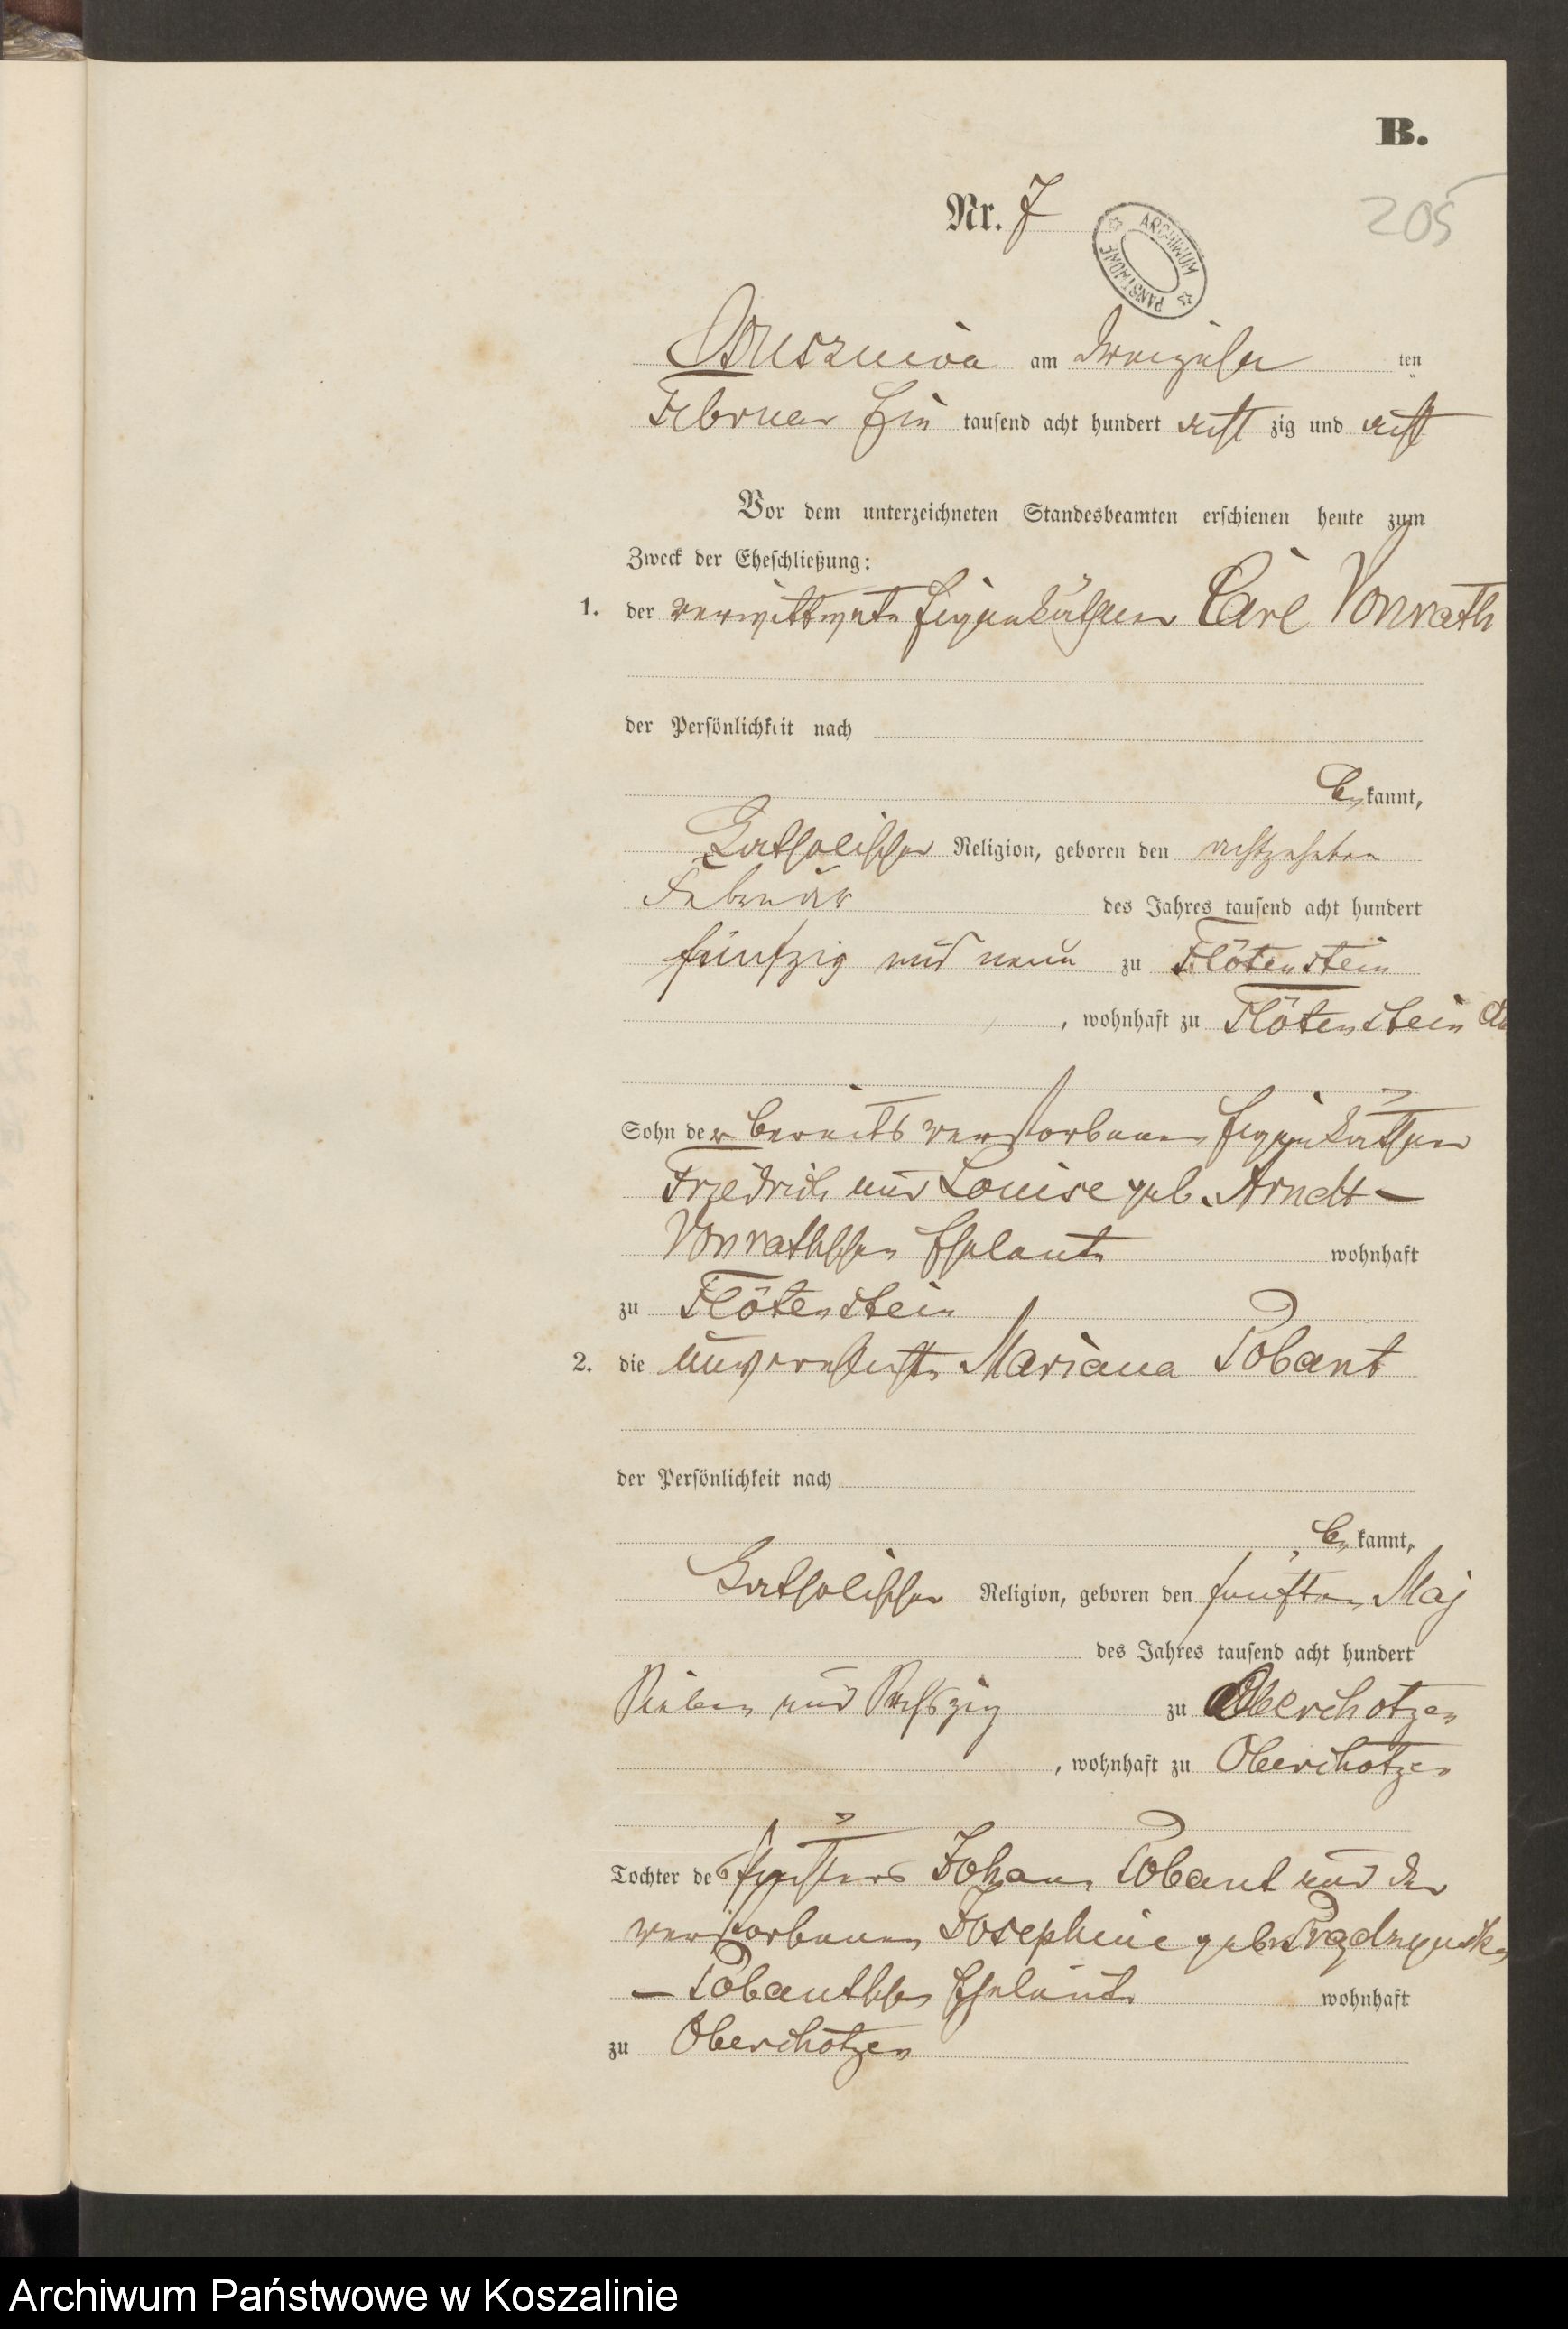 B.
Nr. 7
205
ARCHIWUM PAŃSTWOWE
Borzyszkowo am dreizehn ten
Februar Ein tausend acht hundert acht zig und acht
Vor dem unterzeichneten Standesbeamten erschienen heute zum
Zweck der Eheschließung:
1. der verwittwete Eigenkäthner Carl Vonrath
der Persönlichkeit nach
be kannt,
Katholischer Religion, geboren den achtzehnten
Februar des Jahres tausend acht hundert
fünfzig und neun zu Flötenstein
, wohnhaft zu Flötenstein
Sohn der bereits verstorbenen Eigenkäthner
Friedrich und Louise geb. Arndt –
Vonrathschen Eheleute wohnhaft
zu Flötenstein
2. die unverehelichte Mariana Pobant
der Persönlichkeit nach
be kannt,
Katholischer Religion, geboren den fünften Maj
des Jahres tausend acht hundert
Sieben und Sechszig zu Oberchotzen
, wohnhaft zu Oberchotzen
Tochter des Johann Pobant und der
verstorbenen Josephine geb.
– Pobantschen Eheleute wohnhaft
zu Oberchotzen
Archiwum Państwowe w Koszalinie